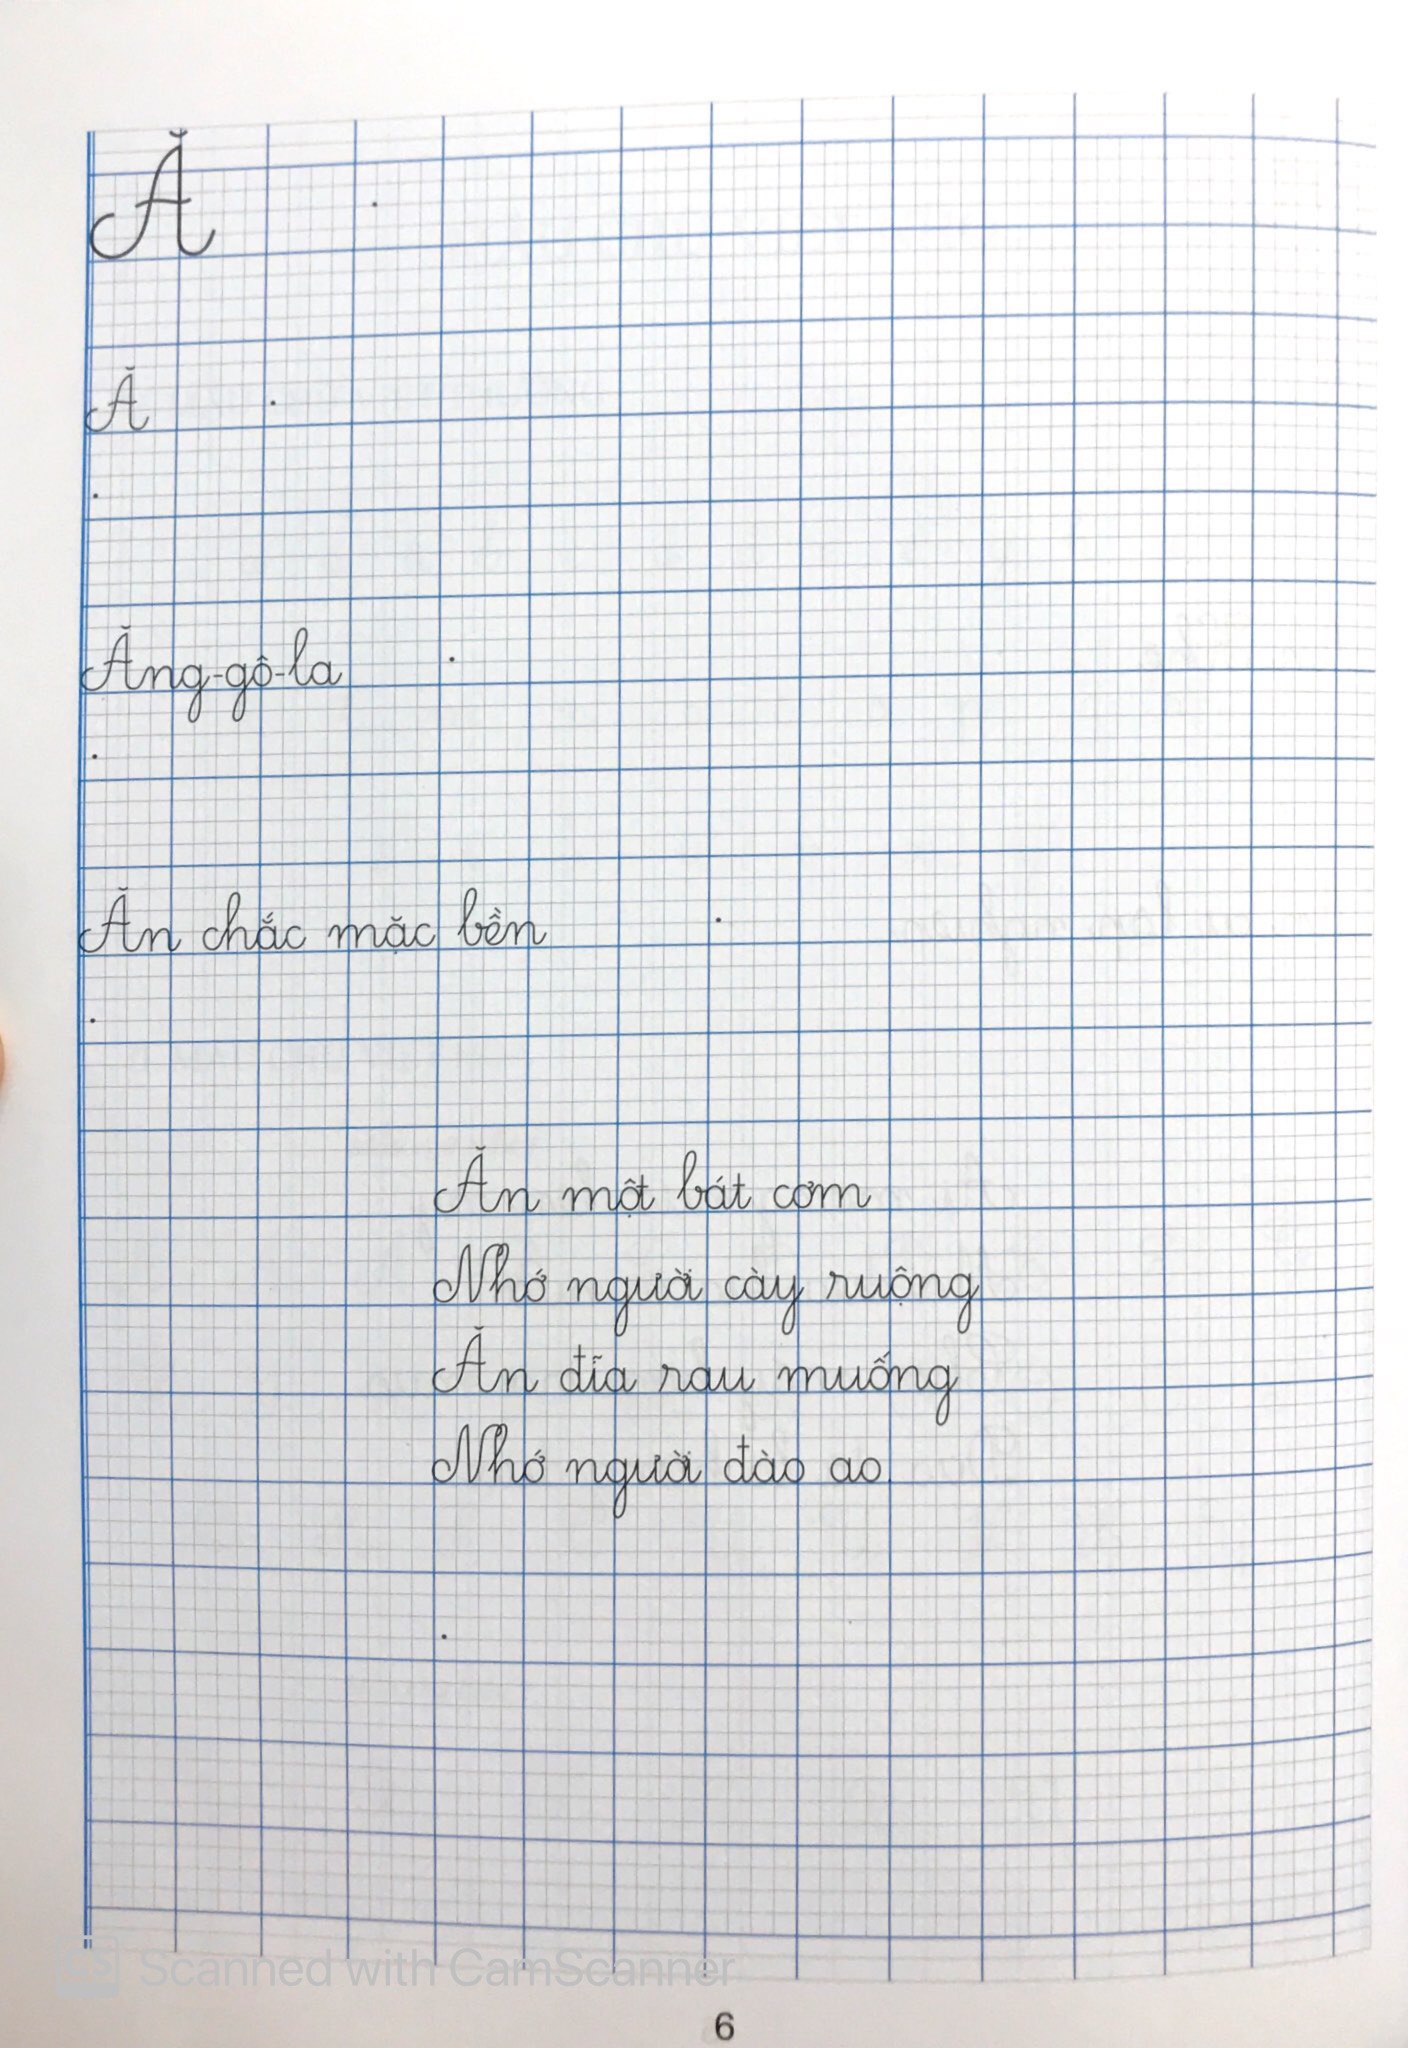 Ă
Ă
Ăng-gô-la
Ăn chắc mặc bền
Ăn một bát cơm
Nhớ người cày ruộng
Ăn đĩa rau muống
Nhớ người đào ao
CS Scanned with CamScanner
6